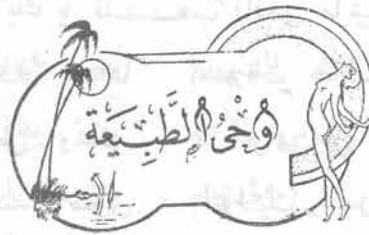 وَحْيُ الطَّبِيعَة